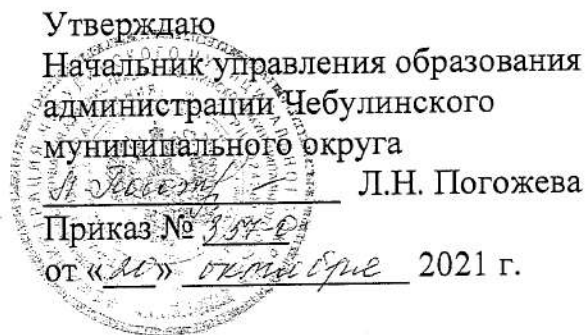 Утверждаю
Начальник управления образования
администрации Чебулинского
муниципального округа
Л.Н. Погожева
Приказ № 357-О
от «20» октября 2021 г.